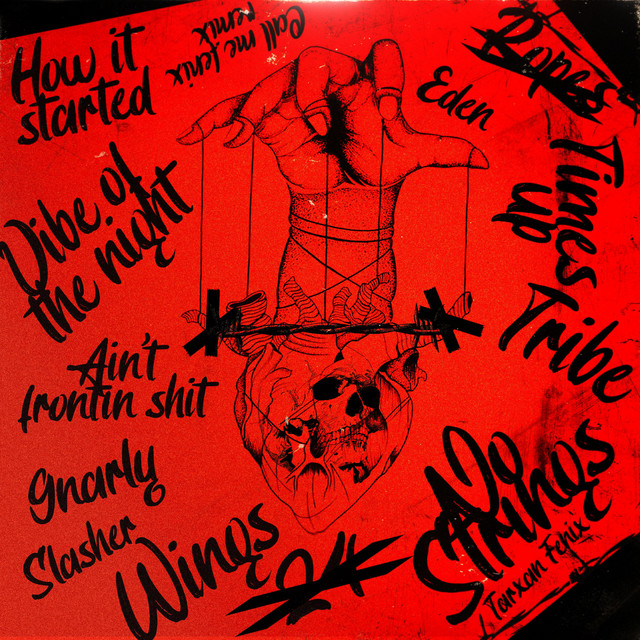 How it
started
Call me fenix
remix
Eden
Ropes
Times
up
Tribe
Vibe of
the night
Ain't
frontin shit
gnarly
Slasher
Wings
No
Strings
Tarxan Fenix